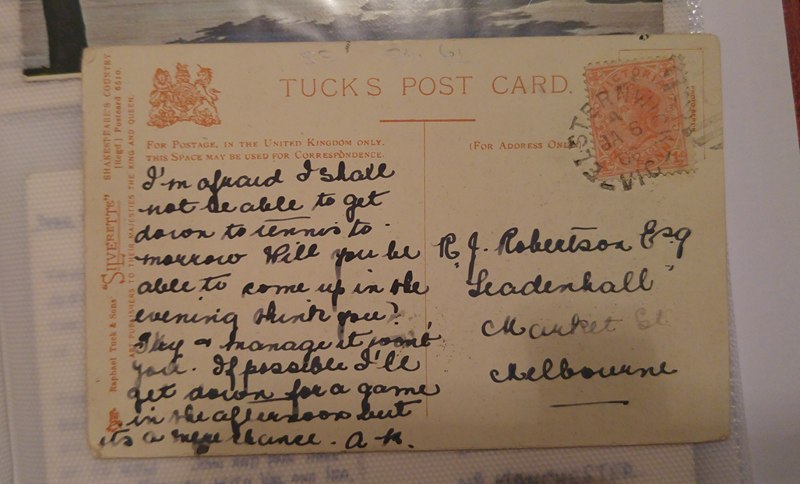 TUCK'S POST CARD.
FOR POSTAGE, IN THE UNITED KINGDOM ONLY,
THIS SPACE MAY BE USED FOR CORRESPONDENCE.
(FOR ADDRESS ONLY
Raphael Tuck & Sons' "SILVERETTE" SHAKESPEARE'S COUNTRY
[Regd.] Postcard 6510.
ART PUBLISHERS TO THEIR MAJESTIES THE KING AND QUEEN.
I'm afraid I shall
not be able to get
down to tennis to-
morrow Will you be
able to come up in the
evening think you?
Try & manage it won't
you. If possible I'll
get down for a game
in the afternoon but
it's a mere chance. A.K.
R. J. Robertson Esq
"Leadenhall"
Market St
Melbourne
ELSTERNWICK
JA 6
VIC